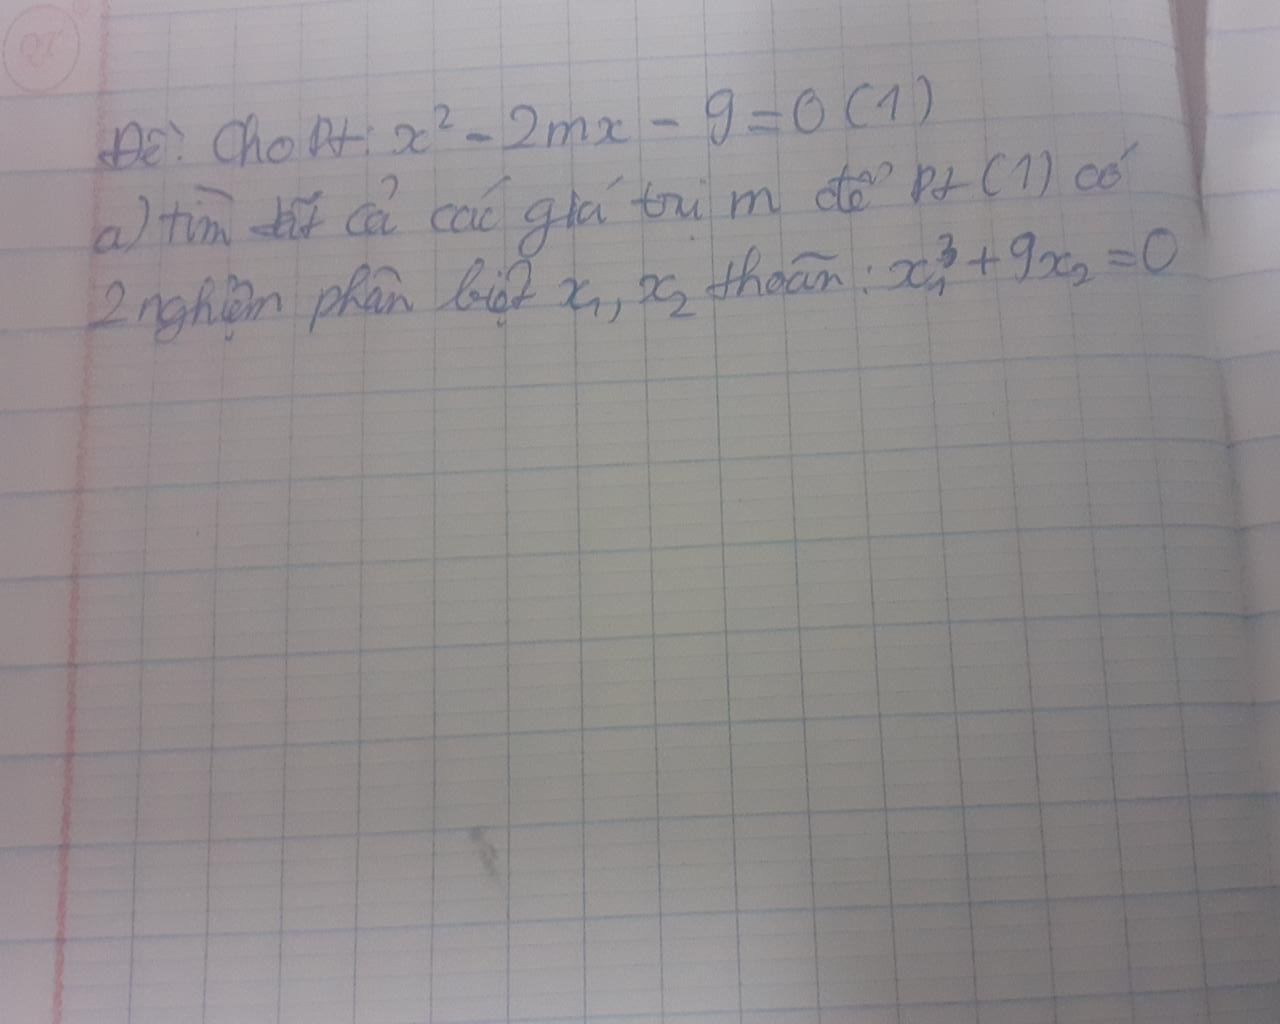 Đề: Cho Pt: x² - 2mx - 9 = 0 (1)
a) tìm tất cả các giá trị m để Pt (1) có
2 nghiệm phân biệt x₁, x₂ thoãn: x₁³ + 9x₂ = 0